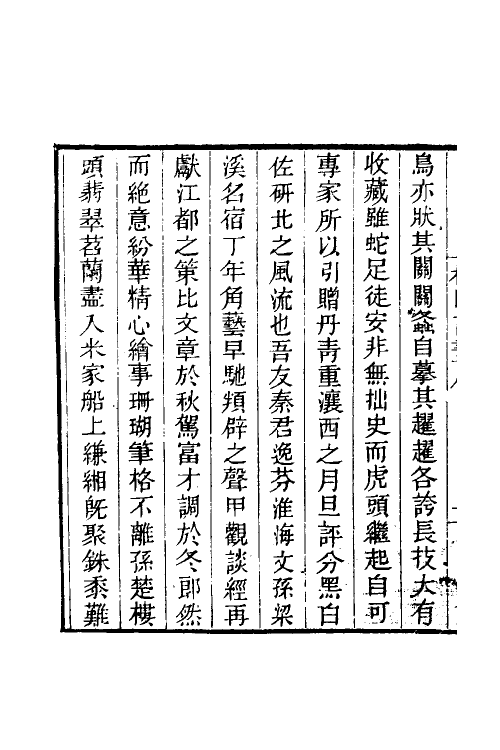 鳥亦狀其關關螽自摹其趯趯各誇長技大有
收藏雖蛇足徒安非無拙史而虎頭繼起自可
專家所以引贈丹靑重瀼西之月旦評分黑白
佐研北之風流也吾友秦君逸芬淮海文孫梁
溪名宿丁年角藝早馳頖辟之聲甲觀談經再
獻江都之策比文章於秋駕富才調於冬郞然
而絶意紛華精心繪事珊瑚筆格不離孫楚樓
頭翡翠苕蘭盡入米家船上縑緗旣聚銖黍難